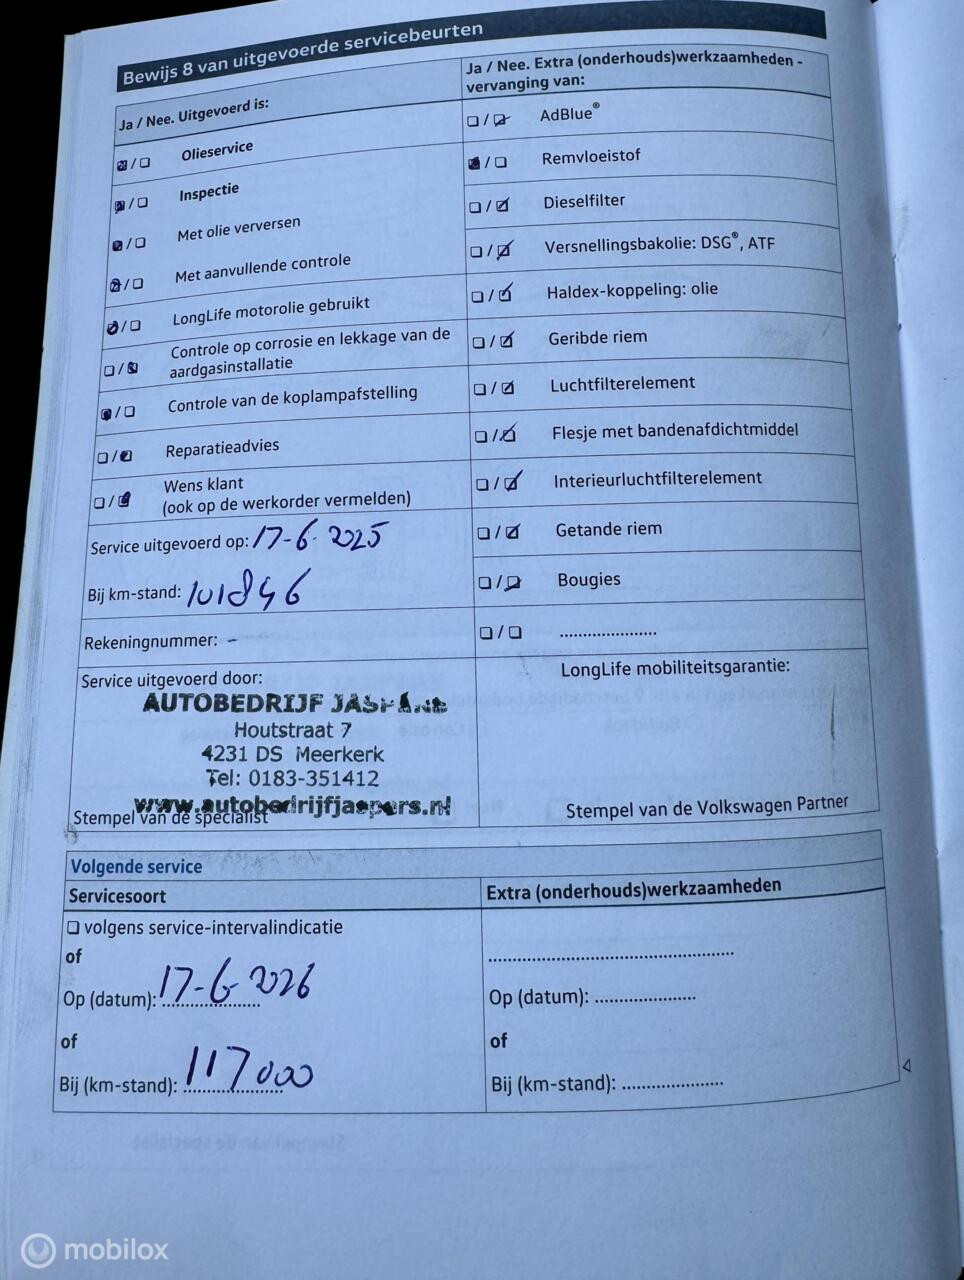 Bewijs 8 van uitgevoerde servicebeurten
Ja / Nee. Uitgevoerd is:
Olieservice
Inspectie
Met olie verversen
Met aanvullende controle
LongLife motorolie gebruikt
Controle op corrosie en lekkage van de
aardgasinstallatie
Controle van de koplampafstelling
Reparatieadvies
Wens klant
(ook op de werkorder vermelden)
Service uitgevoerd op: 17-6-2025
Bij km-stand: 101846
Rekeningnummer: -
Service uitgevoerd door:
AUTOBEDRIJF JASPERS
Houtstraat 7
4231 DS Meerkerk
Tel: 0183-351412
www.autobedrijfjaspers.nl
Stempel van de specialist
Ja / Nee. Extra (onderhouds)werkzaamheden -
vervanging van:
AdBlue®
Remvloeistof
Dieselfilter
Versnellingsbakolie: DSG®, ATF
Haldex-koppeling: olie
Geribde riem
Luchtfilterelement
Flesje met bandenafdichtmiddel
Interieurluchtfilterelement
Getande riem
Bougies
.....................
LongLife mobiliteitsgarantie:
Stempel van de Volkswagen Partner
Volgende service
Servicesoort
volgens service-intervalindicatie
of
Op (datum): 17-6-2026
of
Bij (km-stand): 117000
Extra (onderhouds)werkzaamheden
.....................................................
Op (datum): .....................
of
Bij (km-stand): .....................
mobilox